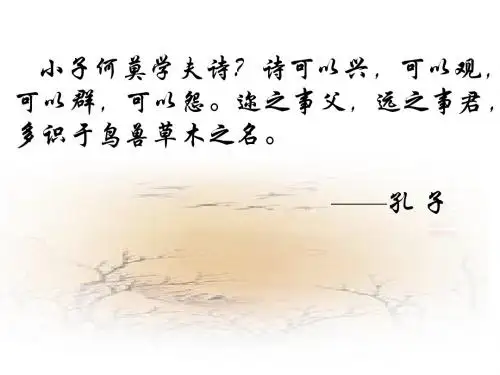 小子何莫学夫诗？诗可以兴，可以观，
可以群，可以怨。迩之事父，远之事君，
多识于鸟兽草木之名。
——孔 子